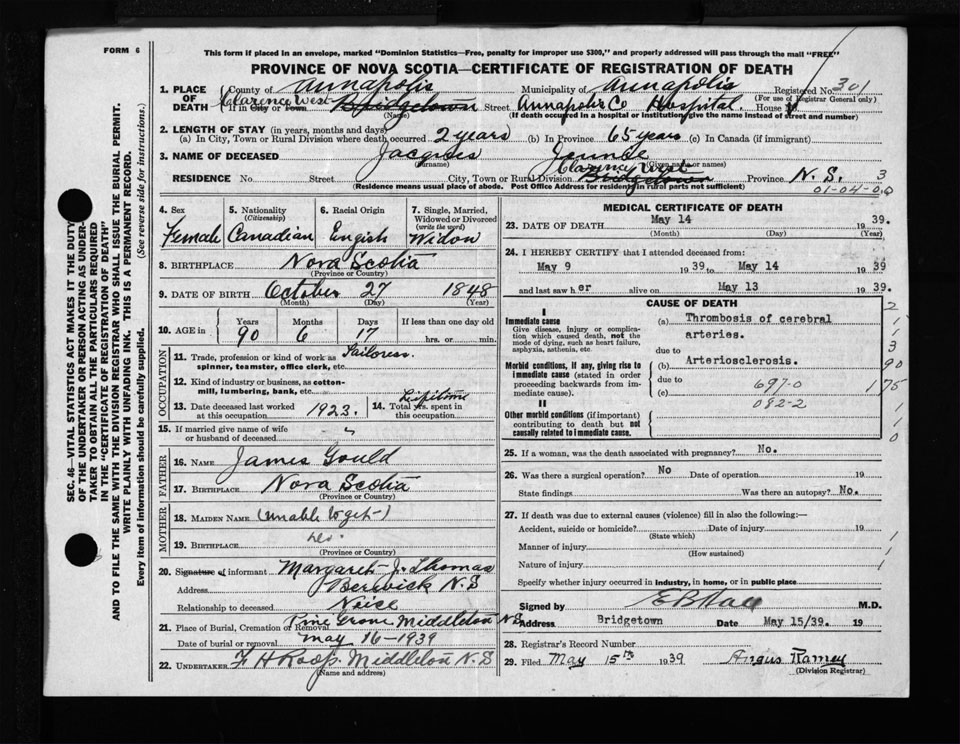 FORM 6
This form if placed in an envelope, marked "Dominion Statistics—Free, penalty for improper use $300," and properly addressed will pass through the mail "FREE"
PROVINCE OF NOVA SCOTIA—CERTIFICATE OF REGISTRATION OF DEATH
SEC. 46—VITAL STATISTICS ACT MAKES IT THE DUTY
OF THE UNDERTAKER OR PERSON ACTING AS UNDER-
TAKER TO OBTAIN ALL THE PARTICULARS REQUIRED
IN THE "CERTIFICATE OF REGISTRATION OF DEATH"
AND TO FILE THE SAME WITH THE DIVISION REGISTRAR WHO SHALL ISSUE THE BURIAL PERMIT.
WRITE PLAINLY WITH UNFADING INK. THIS IS A PERMANENT RECORD.
Every item of information should be carefully supplied. (See reverse side for instructions.)
1. PLACE OF DEATH County of Annapolis Municipality of Annapolis Registered No. 301
(For use of Registrar General only)
Clarence West
If in City or Town Bridgetown Street Annapolis Co Hospital House
(Name) (If death occurred in a hospital or institution, give the name instead of street and number)
2. LENGTH OF STAY (in years, months and days)
(a) In City, Town or Rural Division where death occurred 2 years (b) In Province 65 years (c) In Canada (if immigrant)
3. NAME OF DECEASED Jacques Jennie
(Surname) (Given name or names)
Clarence West
RESIDENCE No Street City, Town or Rural Division Bridgetown Province N. S. 3
(Residence means usual place of abode. Post Office Address for residents in rural parts not sufficient) 01-04-0.0
4. Sex 5. Nationality (Citizenship) 6. Racial Origin 7. Single, Married, Widowed or Divorced (write the word)
Female Canadian Engish Widow
8. BIRTHPLACE Nova Scotia
(Province or Country)
9. DATE OF BIRTH October 27 1848
(Month) (Day) (Year)
10. AGE in Years Months Days If less than one day old
90 6 17 hrs. or min.
OCCUPATION
11. Trade, profession or kind of work as Tailoress
spinner, teamster, office clerk, etc.
12. Kind of industry or business, as cotton-
mill, lumbering, bank, etc.
13. Date deceased last worked at this occupation 1923. 14. Total yrs. spent in this occupation Lifetime
15. If married give name of wife
or husband of deceased "
FATHER
16. NAME James Gould
17. BIRTHPLACE Nova Scotia
(Province or Country)
MOTHER
18. MAIDEN NAME (unable to get)
19. BIRTHPLACE
(Province or Country)
20. Signature of informant Margaret J. Thomas
Address Berwick N.S
Relationship to deceased Neice
21. Place of Burial, Cremation or Removal Pine Grove Middleton N S
Date of burial or removal May 16-1939
22. UNDERTAKER F H Roop Middleton N.S
(Name and address)
MEDICAL CERTIFICATE OF DEATH
23. DATE OF DEATH May 14 1939.
(Month) (Day) (Year)
24. I HEREBY CERTIFY that I attended deceased from:
May 9 1939 to May 14 1939
and last saw her alive on May 13 1939.
CAUSE OF DEATH
I
Immediate cause
Give disease, injury or complica-
tion which caused death, not the
mode of dying, such as heart failure,
asphyxia, asthenia, etc.
(a) Thrombosis of cerebral
arteries.
due to
Morbid conditions, if any, giving rise to
immediate cause (stated in order
proceeding backwards from im-
mediate cause).
(b) Arteriosclerosis.
due to 697-0
(c)
082-2
II
Other morbid conditions (if important)
contributing to death but not
causally related to immediate cause.
2
1
3
90
1 75
1
0
25. If a woman, was the death associated with pregnancy? No.
26. Was there a surgical operation? No Date of operation 19
State findings Was there an autopsy? No.
27. If death was due to external causes (violence) fill in also the following:—
Accident, suicide or homicide? Date of injury 19
(State which)
Manner of injury 1
(How sustained)
Nature of injury 1
Specify whether injury occurred in industry, in home, or in public place
Signed by M.D.
Address Bridgetown Date May 15/39. 19
28. Registrar's Record Number
29. Filed May 15th 1939 Angus Ramey
(Division Registrar)